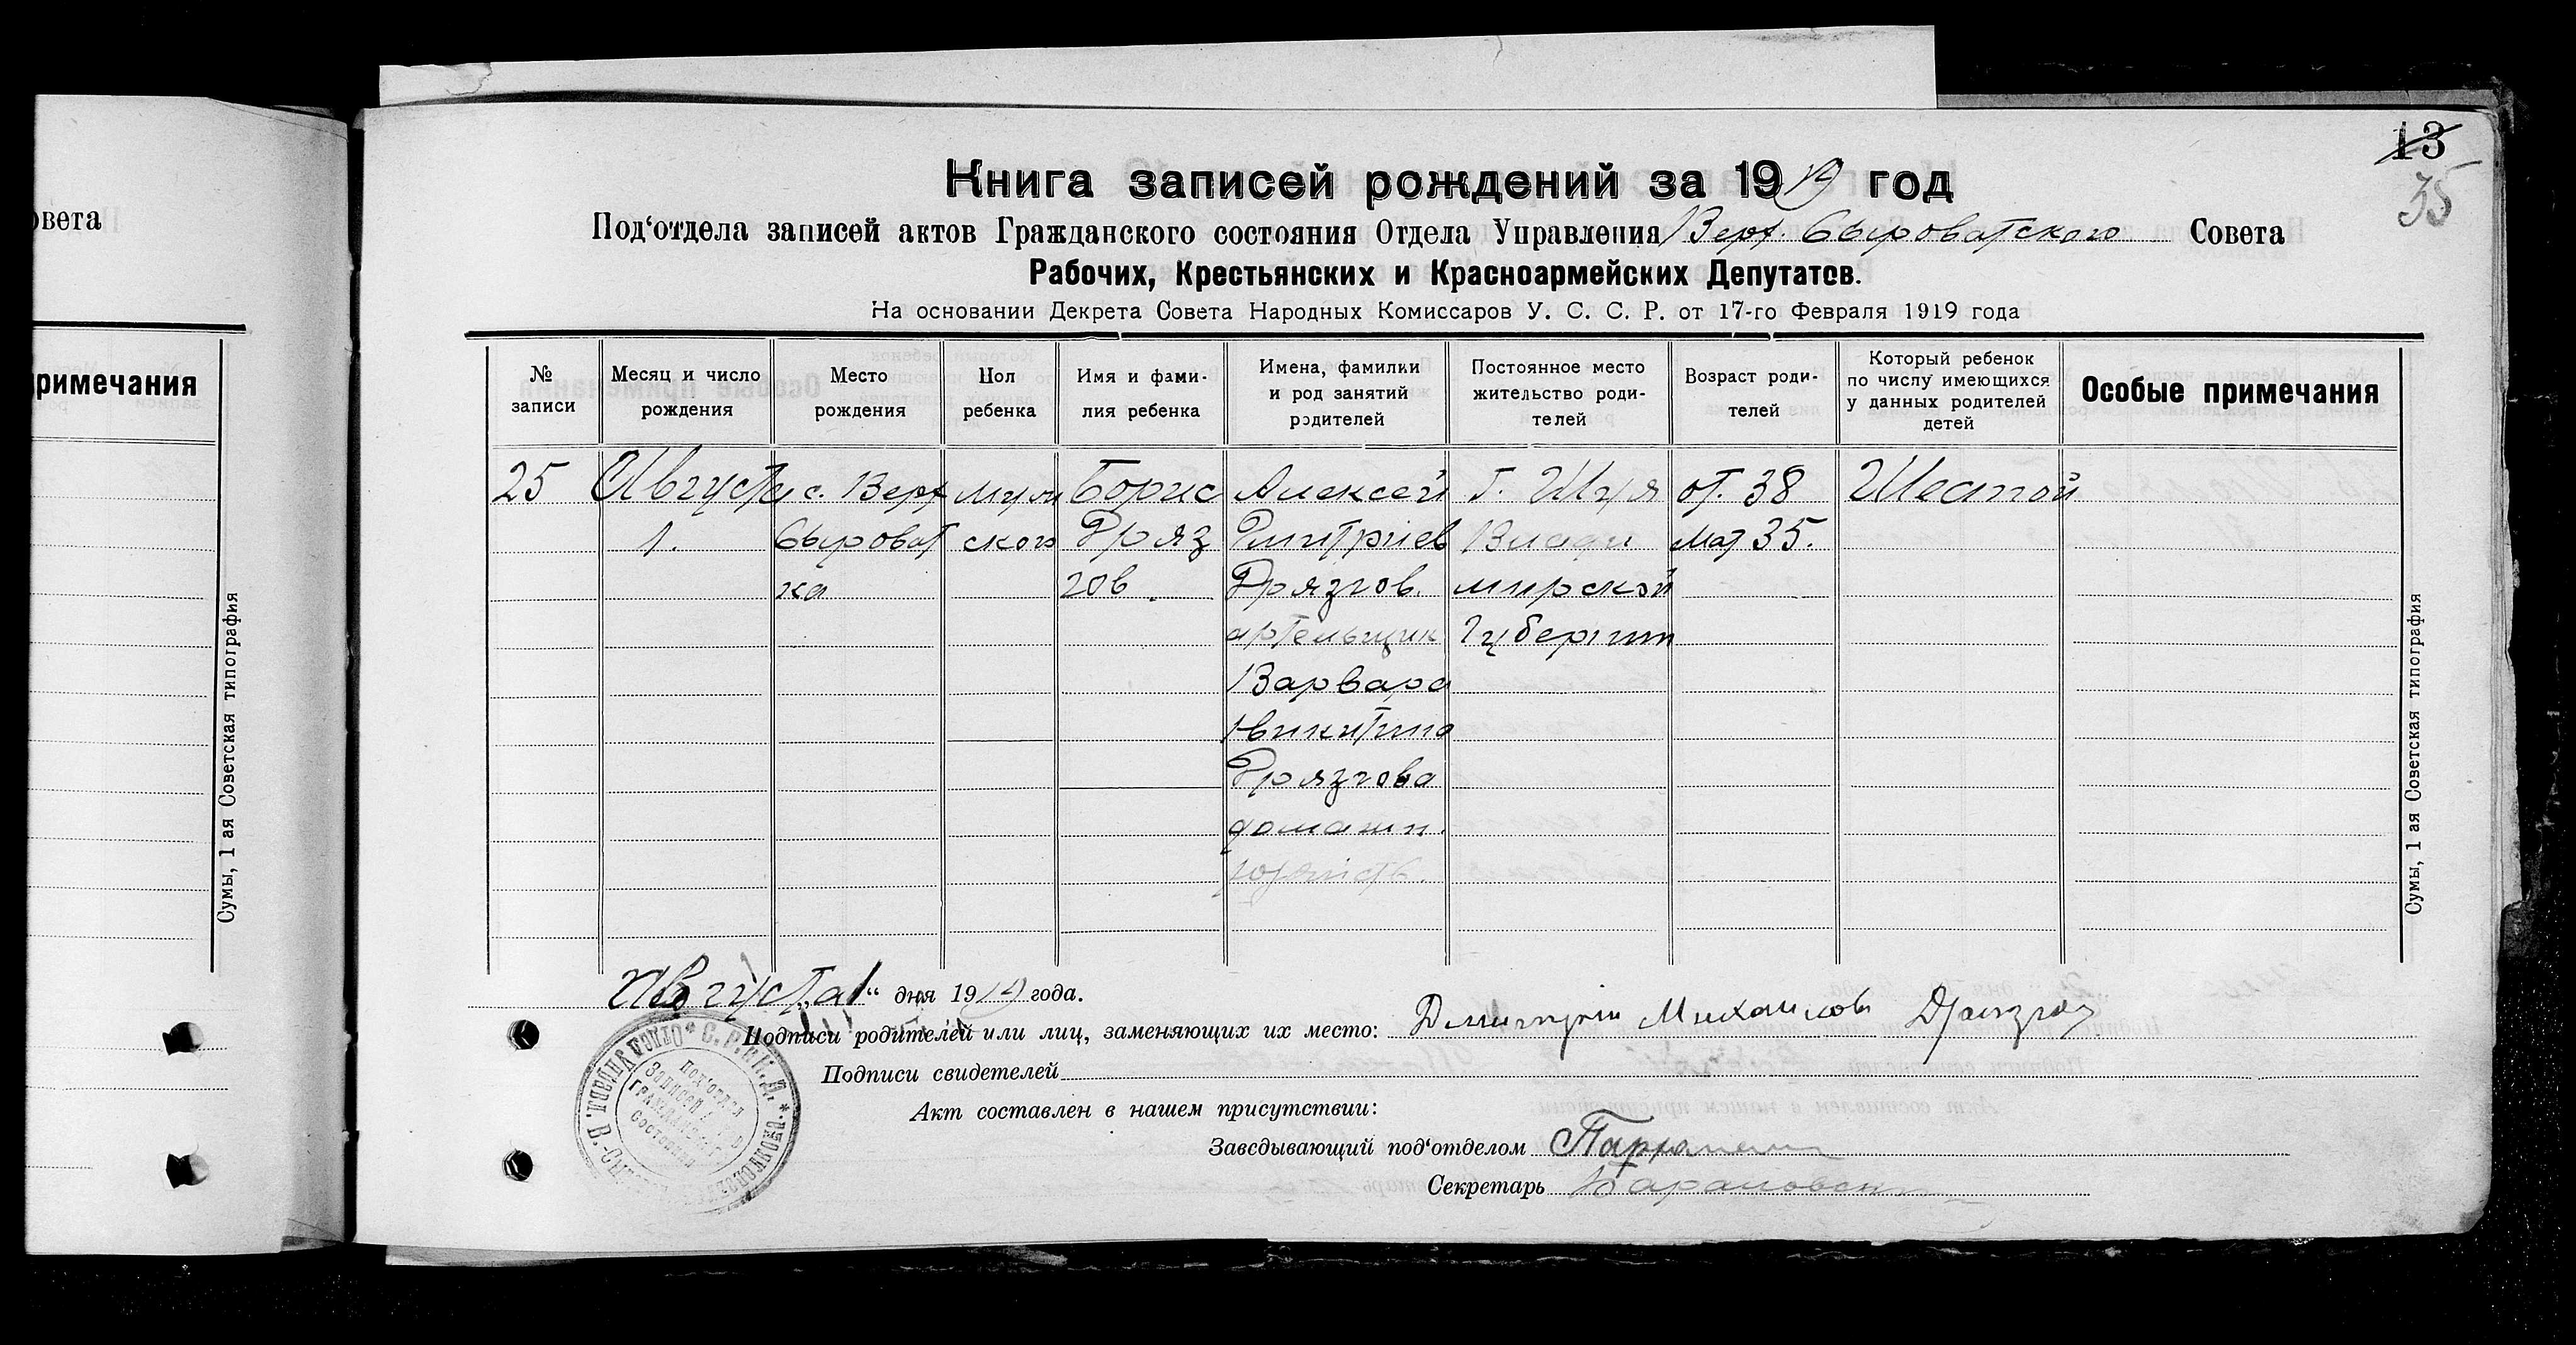 овета
римечания
Сумы, 1 ая Советская типография
13
35
Книга записей рождений за 1919 год
Под‘отдела записей актов Гражданского состояния Отдела Управления Верх. Сыроватского Совета
Рабочих, Крестьянских и Красноармейских Депутатов.
На основании Декрета Совета Народных Комиссаров У. С. С. Р. от 17-го Февраля 1919 года
№ записи
Месяц и число рождения
Место рождения
Пол ребенка
Имя и фами-лия ребенка
Имена, фамилии и род занятий родителей
Постоянное место жительство роди-телей
Возраст роди-телей
Который ребенок по числу имеющихся у данных родителей детей
Особые примечания
25 Августа с. Верх муж Борис Алексей г. Шуя от. 38 Шестой
1. Сыроват ского Дряз Дмитриев Влади мат 35.
ка гов. Дрязгов. мирской
артельщик Губернии
Варвара
Никитина
Дрязгова
домашн.
хозяйств.
Сумы, 1 ая Советская типография
Августа „1“ дня 1919 года.
Подписи родителей или лиц, заменяющих их место: Дмитрий Михайлов Дрязгов
Подписи свидетелей
Акт составлен в нашем присутствии:
Заведывающий под‘отделом
Секретарь
Под‘отдел
Записей
Гражданск.
Состояния